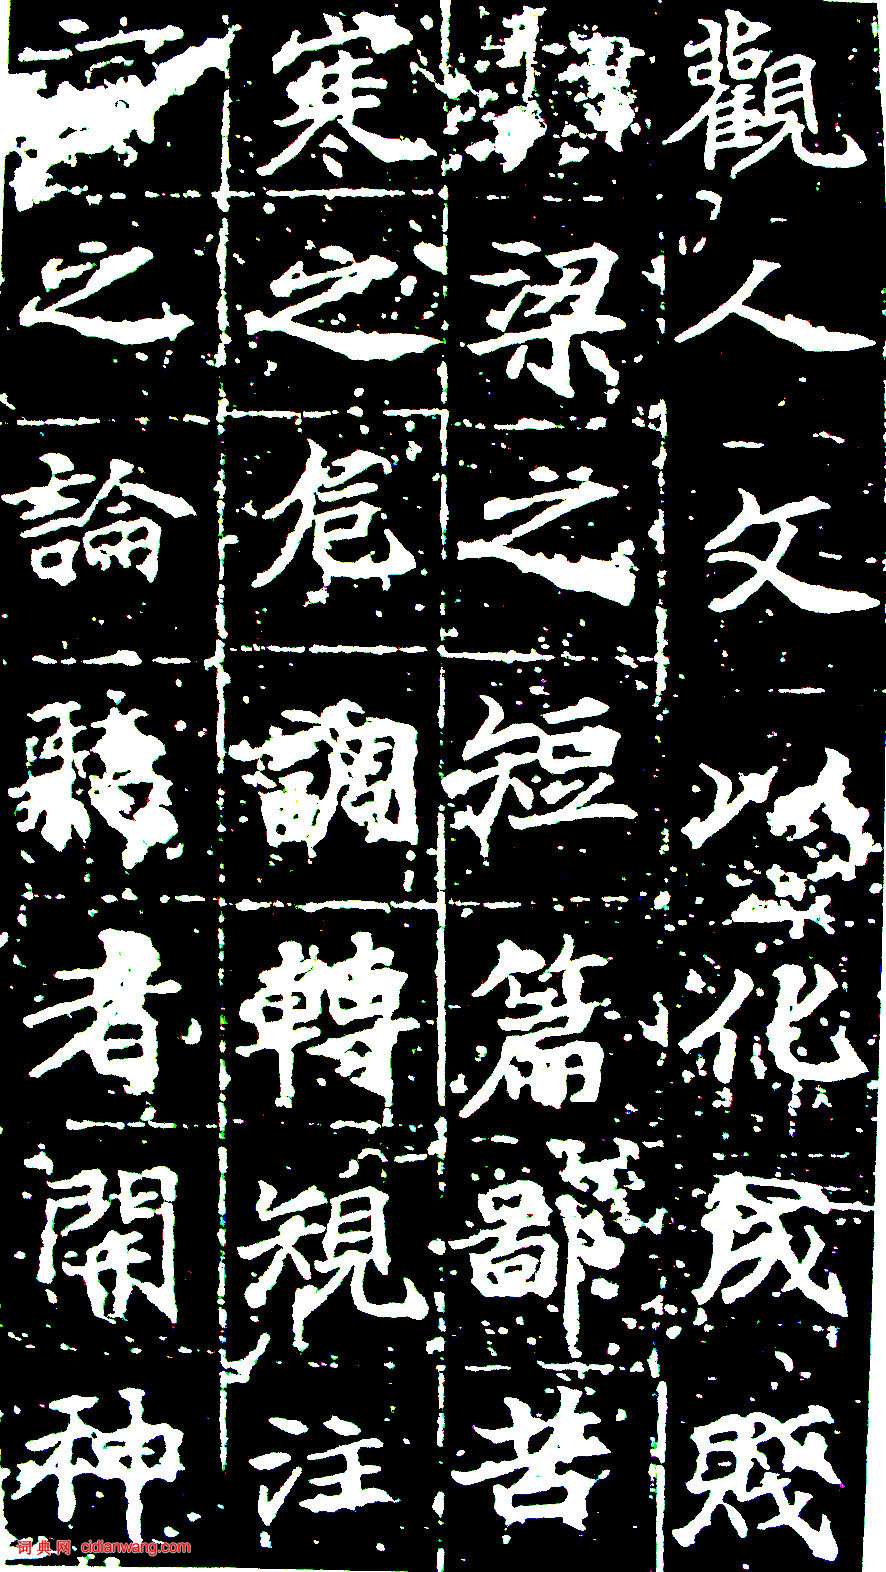 觀人文以化成賤
梁之短篇鄙苦
寒之危調轉規注
之論聽者開神
词典网 cidianwang.com